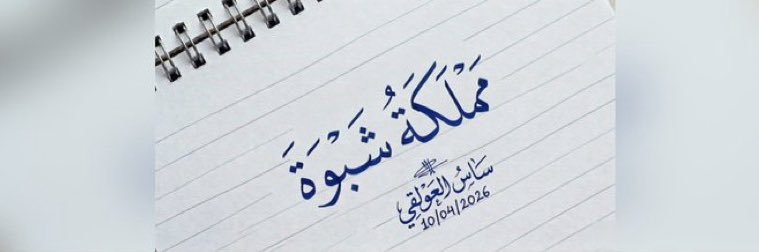 مَمْلَكَةُ شَبْوَةَ
سَاسُ العَوْلَقِي
10/04/2026